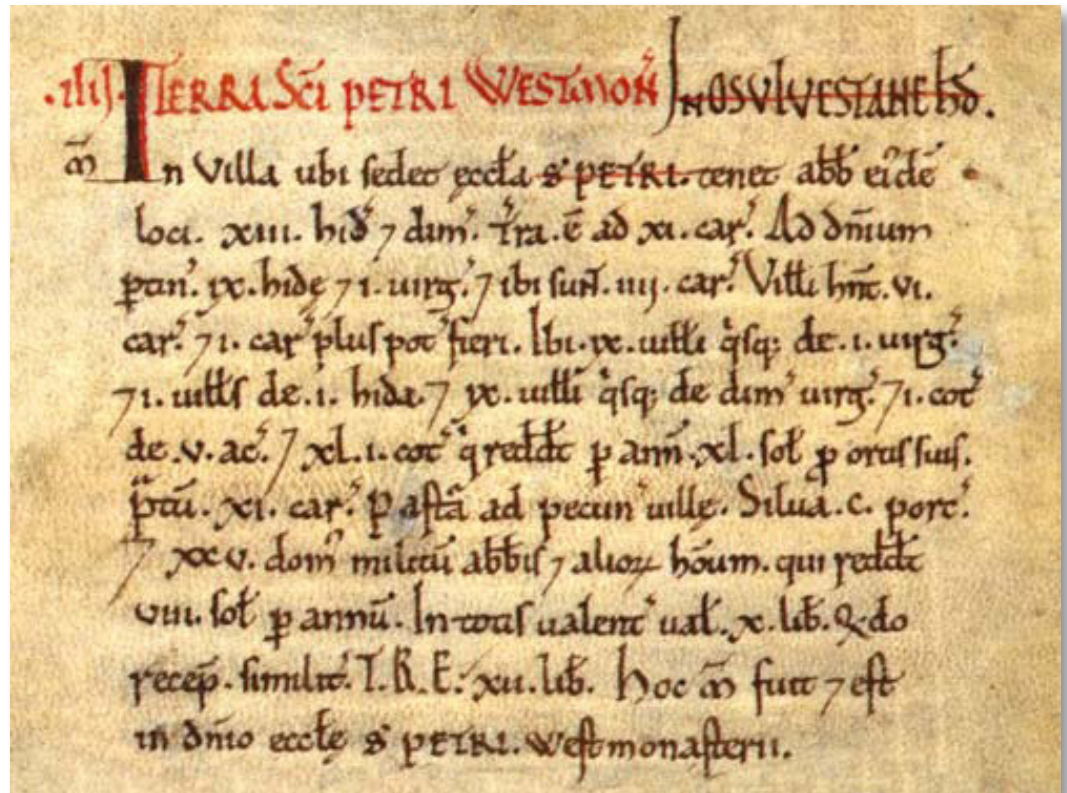 .IIII. TERRA S̃CI PETRI WESTMON̄ IN OSVLVESTANE hD̃.
M̃ In Villa ubi sedet æccl̃a S̃ PETRI. tenet abb̃ ei'dẽ
loci. xiii. hid' ⁊ dim'. T'ra. ẽ ad xi. car'. Ad dñium
ꝑtin'. ix. hidę ⁊ i. uirg'. ⁊ ibi sun̄t. iiii. car'. Vilłi hñt. vi.
car'. ⁊ i. car' plus pot' fieri. Ibi. ix. uilłi q̃sq; de. i. uirg'.
⁊ i. uilłs de. i. hida. ⁊ ix. uilłi q̃sq; de dim' uirg'. ⁊ i. cot'
de .v. ac'. ⁊ xl. i. cot' q̃ redd̃t ꝑ ann̄. xl. sol̃ ꝓ ortis suis.
P̃tū. xi. car'. Pastā ad pecun' uillę. Silua. c. porc'.
⁊ xxv. dom' militū abb̃is ⁊ alioꝝ hõum. qui redd̃t
viii. sol̃ ꝑ annū. In totis ualent' ual̃. x. lib̃. Q̃do
recep̃. similit'. T.R.E. xii. lib̃. Hoc M̃ fuit ⁊ est
in dñio æccl̃ę S̃ PETRI. Westmonasterii.